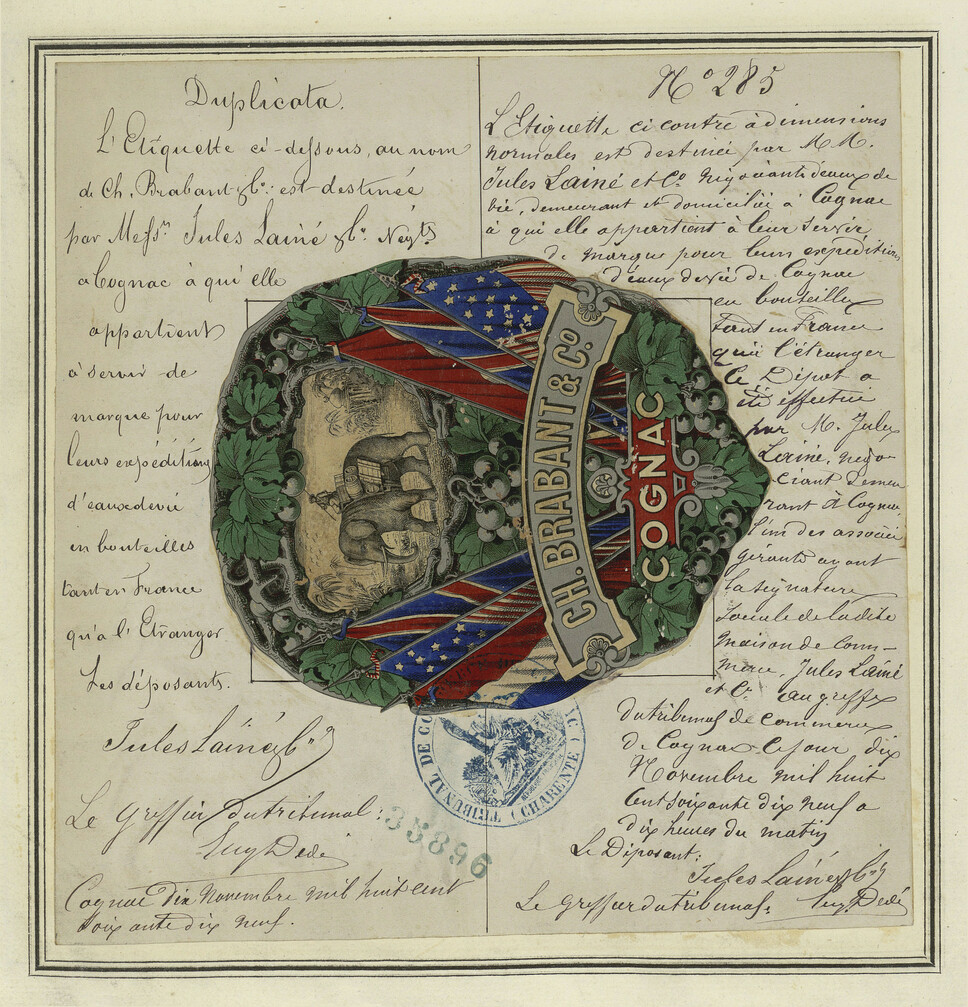 Duplicata.
L'Etiquette ci-dessous, au nom
de Ch. Brabant & Co. est destinée
par Messrs Jules Lainé & Co. Négts
a Cognac à qui elle
appartient
à servir de
marque pour
leurs expéditions
d'eaux de vie
en bouteilles
tant en France
qu'à l'Etranger
Les déposants.
Jules Lainé & Co
Le Greffier du tribunal:
Cognac dix Novembre mil huit cent
soixante dix neuf.
No 285
L'Etiquette ci contre à dimensions
normales est destinée par M M.
Jules Lainé et Co négociants d'eaux de
vie, demeurant et domiciliés à Cognac
à qui elle appartient à leur servir
de marque pour leurs expéditions
d'eaux de vie de Cognac
en bouteilles
tant en France
qu'à l'étranger
Ce Dépot a
été effectué
par M. Jules
Lainé, négo-
ciant demeu
rant à Cognac
l'un des associés
gérants ayant
la signature
sociale de la dite
maison de com-
merce, Jules Lainé
et Co au greffe
du tribunal de commerce
de Cognac ce jour dix
Novembre mil huit
cent soixante dix neuf a
dix heures du matin
Le Déposant:
Jules Lainé & Co
Le Greffier du tribunal:
CH. BRABANT & Co.
COGNAC
TRIBUNAL DE CO
(CHARENTE)
35896